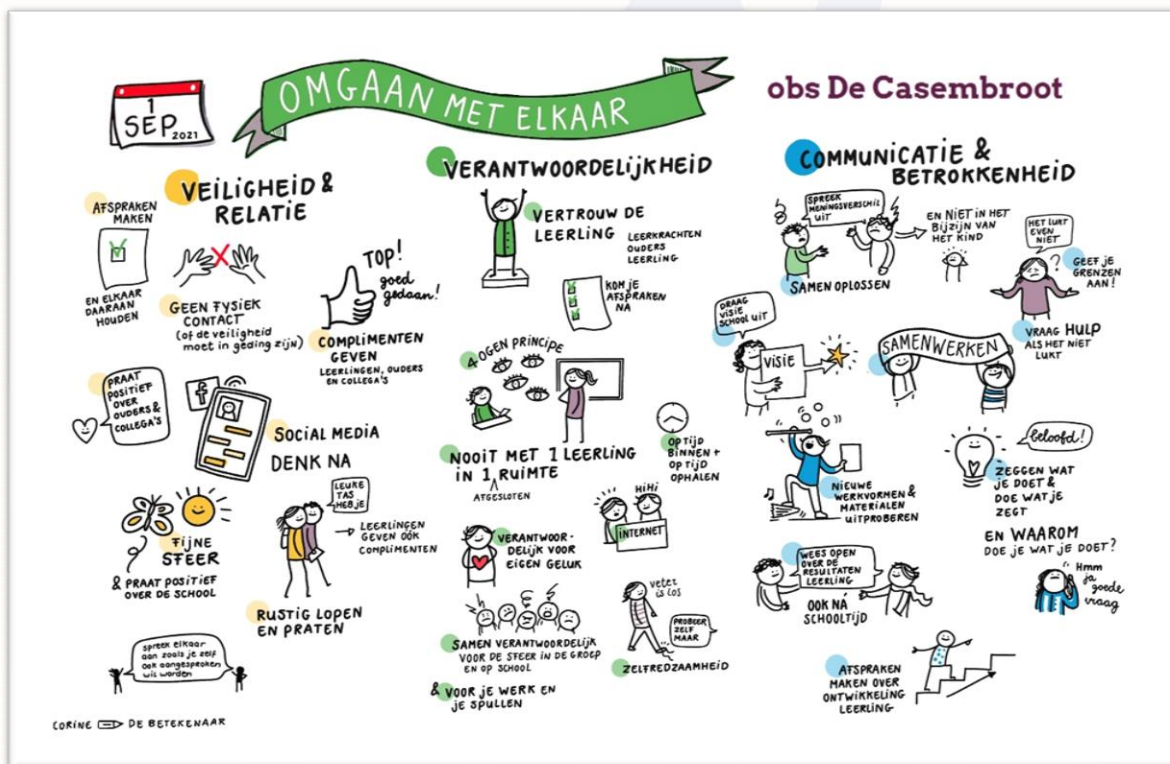 1
SEP
2021
OMGAAN MET ELKAAR
obs De Casembroot
VEILIGHEID &
RELATIE
AFSPRAKEN
MAKEN
EN ELKAAR
DAARAAN
HOUDEN
GEEN FYSIEK
CONTACT
(of de veiligheid
moet in geding zijn)
TOP!
goed
gedaan!
COMPLIMENTEN
GEVEN
LEERLINGEN, OUDERS
EN COLLEGA'S
PRAAT
POSITIEF
OVER
OUDERS &
COLLEGA'S
f
SOCIAL MEDIA
DENK NA
FIJNE
SFEER
& PRAAT POSITIEF
OVER DE SCHOOL
LEUKE
TAS
HEB JE
LEERLINGEN
GEVEN OÓK
COMPLIMENTEN
RUSTIG LOPEN
EN PRATEN
spreek elkaar
aan zoals je zelf
ook aangesproken
wil worden
CORINE DE BETEKENAAR
VERANTWOORDELIJKHEID
VERTROUW DE
LEERLING
LEERKRACHTEN
OUDERS
LEERLING
KOM JE
AFSPRAKEN
NA
4 OGEN PRINCIPE
NOOIT MET 1 LEERLING
IN 1 RUIMTE
AFGESLOTEN
OP TIJD
BINNEN +
OP TIJD
OPHALEN
HiHi
INTERNET
VERANTWOOR-
DELIJK VOOR
EIGEN GELUK
SAMEN VERANTWOORDELIJK
VOOR DE SFEER IN DE GROEP
EN OP SCHOOL
& VOOR JE WERK EN
JE SPULLEN
veter
is los
PROBEER
ZELF
MAAR
ZELFREDZAAMHEID
COMMUNICATIE &
BETROKKENHEID
SPREEK
MENINGSVERSCHIL
UIT
EN NIET IN HET
BIJZIJN VAN
HET KIND
SAMEN OPLOSSEN
HET LUKT
EVEN
NIET
?
GEEF JE
GRENZEN
AAN!
VRAAG HULP
ALS HET NIET
LUKT
DRAAG
VISIE
SCHOOL UIT
VISIE
SAMENWERKEN
NIEUWE
WERKVORMEN &
MATERIALEN
UITPROBEREN
beloofd!
ZEGGEN WAT
JE DOET &
DOE WAT JE
ZEGT
EN WAAROM
DOE JE WAT JE DOET?
Hmm
ja
goede
vraag
WEES OPEN
OVER DE
RESULTATEN
LEERLING
OOK NÁ
SCHOOLTIJD
AFSPRAKEN
MAKEN OVER
ONTWIKKELING
LEERLING